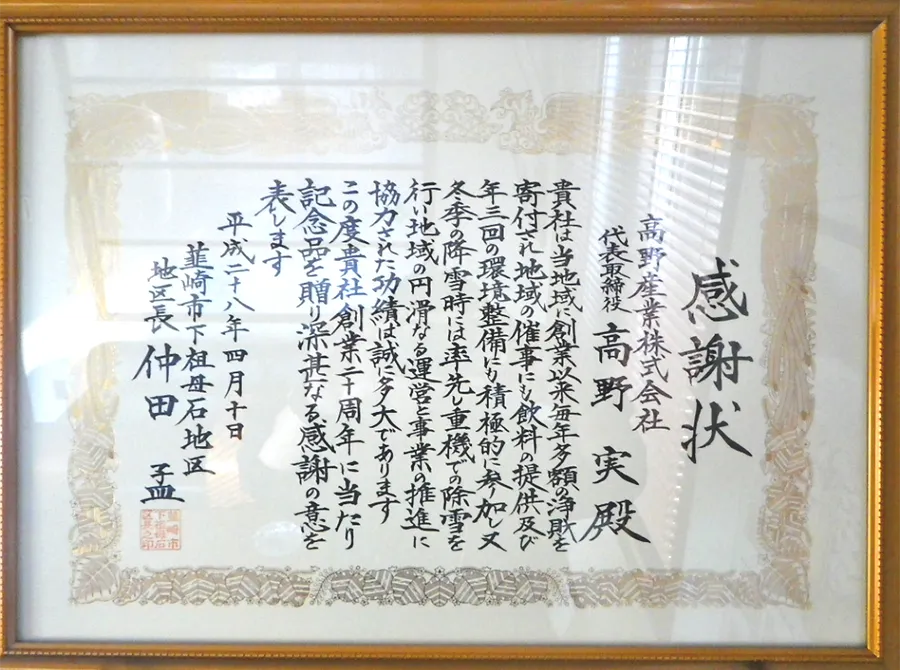 感謝状
高野産業株式会社
代表取締役 高野 実 殿
貴社は当地域に創業以来毎年多額の浄財を
寄付され地域の催事にも飲料の提供及び
年三回の環境整備にも積極的に参加し又
冬季の降雪時には率先し重機での除雪を
行い地域の円滑なる運営と事業の推進に
協力された功績は誠に多大であります
この度貴社創業二十周年に当たり
記念品を贈り深甚なる感謝の意を
表します
平成二十八年四月十日
韮崎市下祖母石地区
地区長 仲田 孟